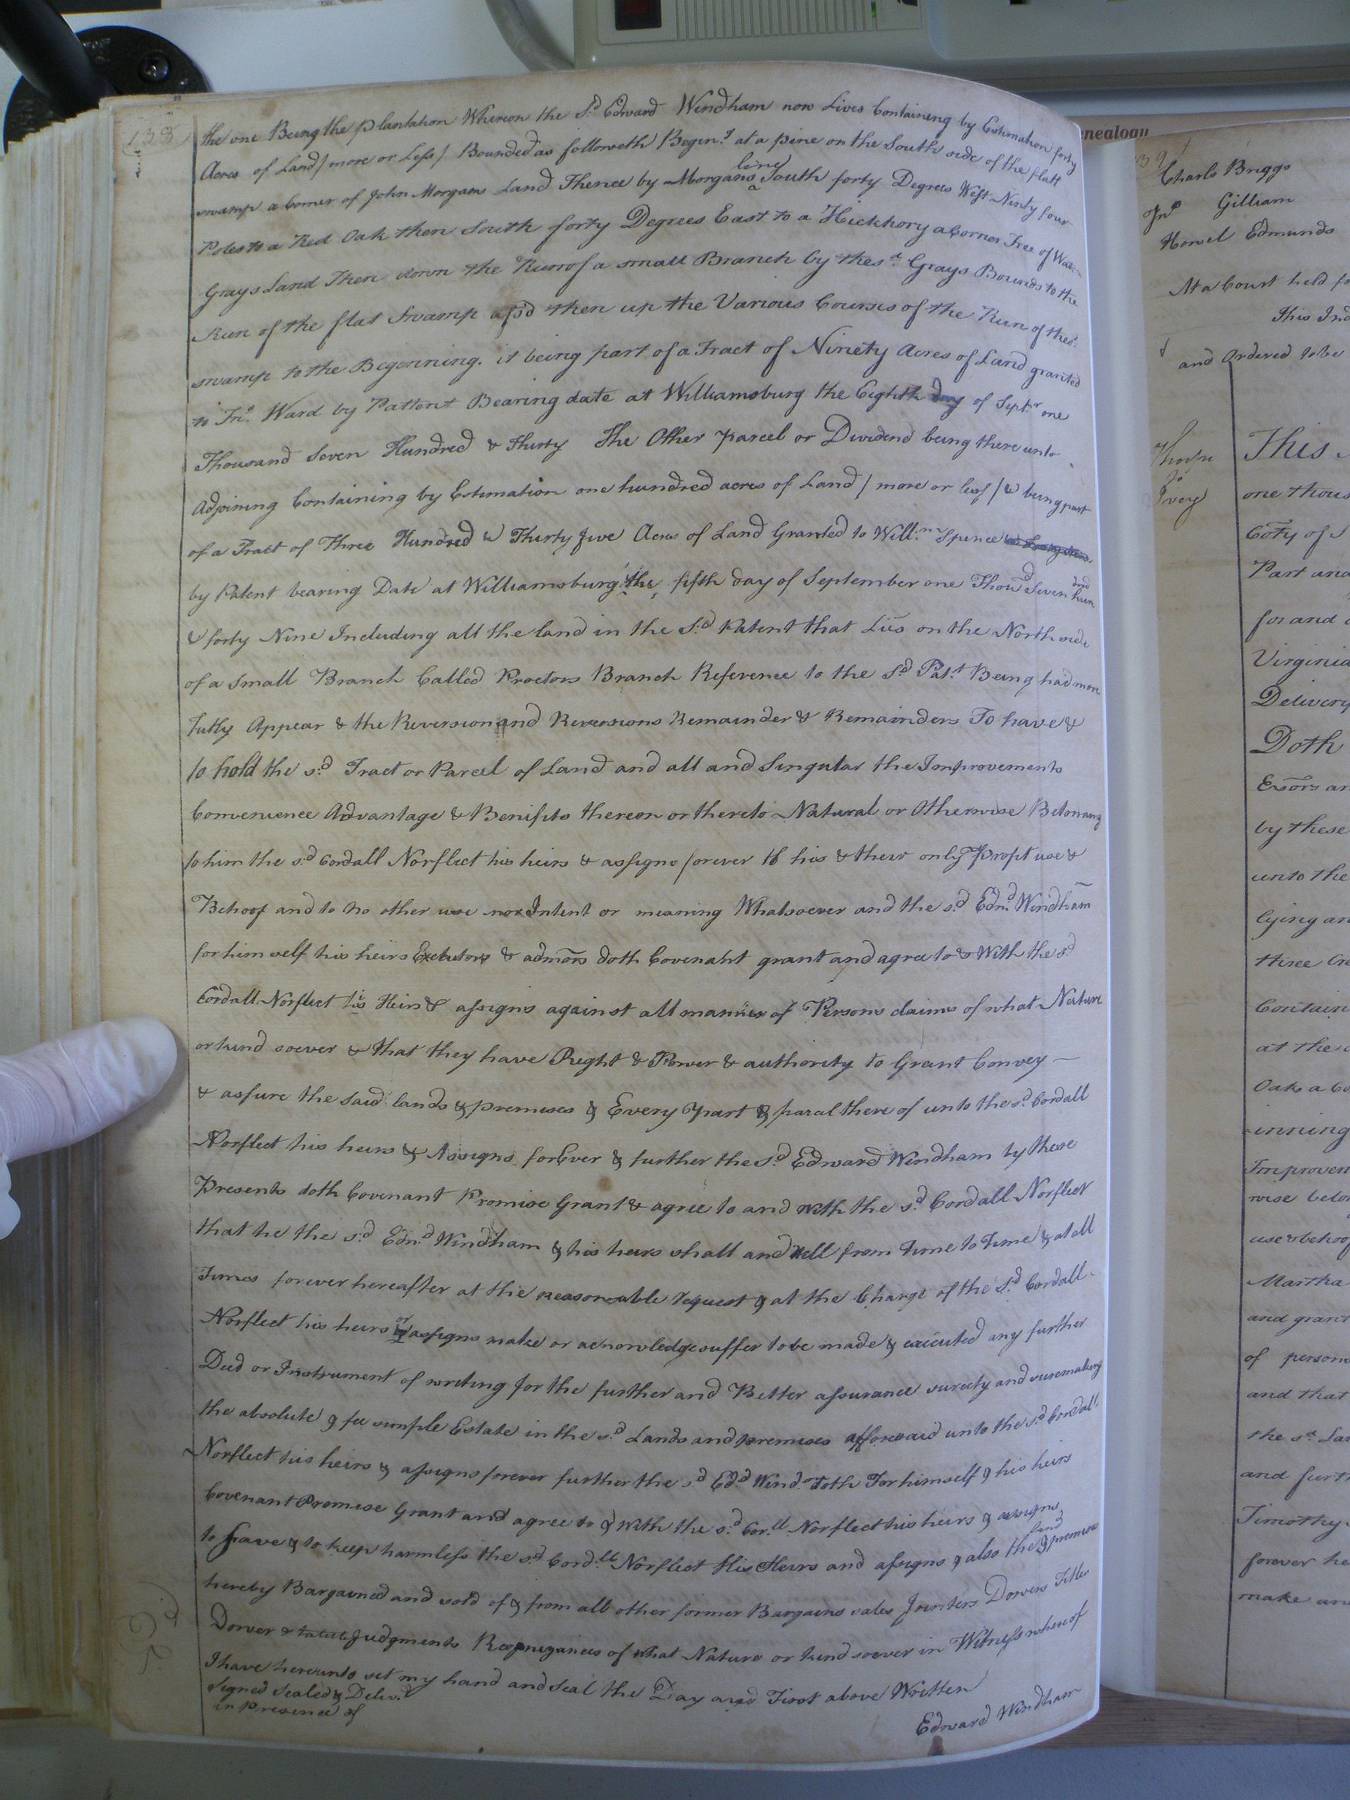 138
the one Being the plantation Whereon the Sd. Edward Windham now Lives Containing by Estimation forty
Acres of Land / more or Less / Bounded as followeth Begin.g at a pine on the South side of the flatt
swamp a Corner of John Morgans Land Thence by Morgans line South forty Degrees West Ninty four
Poles to a Red Oak then South forty Degrees East to a Hickhory a Corner Tree of
Grays Land Then down the Run of a small Branch by the sd. Grays Bounds to the
Run of the flat Swamp afsd then up the Various Courses of the Run of the sd.
swamp to the Beginning. it being part of a Tract of Ninety Acres of Land granted
to Ward by Pattent Bearing date at Williamsburg the Eighth day of Septr. one
Thousand Seven Hundred & Thirty The Other parcel or Dividend being there unto
Adjoining Containing by Estimation one hundred acres of Land / more or less / & being part
of a Tract of Three Hundred & Thirty five Acres of Land Granted to Willm. Spence
by Patent bearing Date at Williamsburg the fifth day of September one Thousd Seven hund
& forty Nine Including all the land in the Sd. Patent that Lies on the North side
of a Small Branch Called Proctors Branch Reference to the Sd. Patt. Being had more
fully Appear & the Reversion and Reversions Remainder & Remainders To have &
to hold the sd. Tract or Parcel of Land and all and Singular the Improvements
Convenience Advantage & Benifits thereon or thereto Natural or Otherwise Belonging
to him the sd. Cordall Norflect his heirs & assigns forever to his & their only Propt use &
Behoof and to no other use nor Intent or meaning Whatsoever and the sd. Edwd. Windham
for himself his heirs Exebutors & admors doth Covenant grant and agree to & With the sd
Cordall Norflect his Heirs & assigns against all manner of Persons claims of what Nature
or kind soever & that they have Right & Power & authority to Grant Convey —
& assure the said lands & premises & Every part & parcel there of unto the sd. Cordall
Norflect his heirs & Assigns forEver & further the Sd. Edward Windham by these
Presents doth Covenant Promise Grant & agree to and with the sd. Cordall Norflect
that he the sd. Edwd. Windham & his heirs shall and will from Time to Time & at all
Times forever hereafter at the reasonable request & at the Charge of the Sd. Cordall
Norflect his heirs or assigns make or acknowledge suffer to be made & executed any further
Deed or Instrument of writing for the further and Better assurance surety and suremaking
the absolute & fee simple Estate in the sd. Lands and premises afforesaid unto the sd. Cordall
Norflect his heirs & assigns forever further the sd Edwd Windm. doth For himself & his heirs
Covenant Promise Grant and agree to & With the sd. Cor.ll Norflect his heirs & assigns
to save & to keep harmless the sd. Cord.ll Norflect His Heirs and assigns & also the land & premises
hereby Bargained and sold of & from all other former Bargains sales Jointers Dowers Titles
Dower & Judgments Recognizances of what Nature or kind soever in Witness whereof
I have hereunto set my hand and Seal the Day and First above Written
Signed Sealed & Delivd.
in Presence of
Edward Windham
enealogy
Charls Briggs
Jno Gilliam
Howel Edmunds
At a Court held fo
This Ind
and Ordered to be
Thorpe
to
Ivey
This
one thous
Coty of S
Part and
for and
Virginia
Delivery
Doth
Exors an
by these
unto the
lying an
three
Contain
at the
Oak a Co
inning
Improvem
wise belo
use & behoof
Martha
and grant
of person
and that
the sd. La
and furt
Timothy
forever he
make an